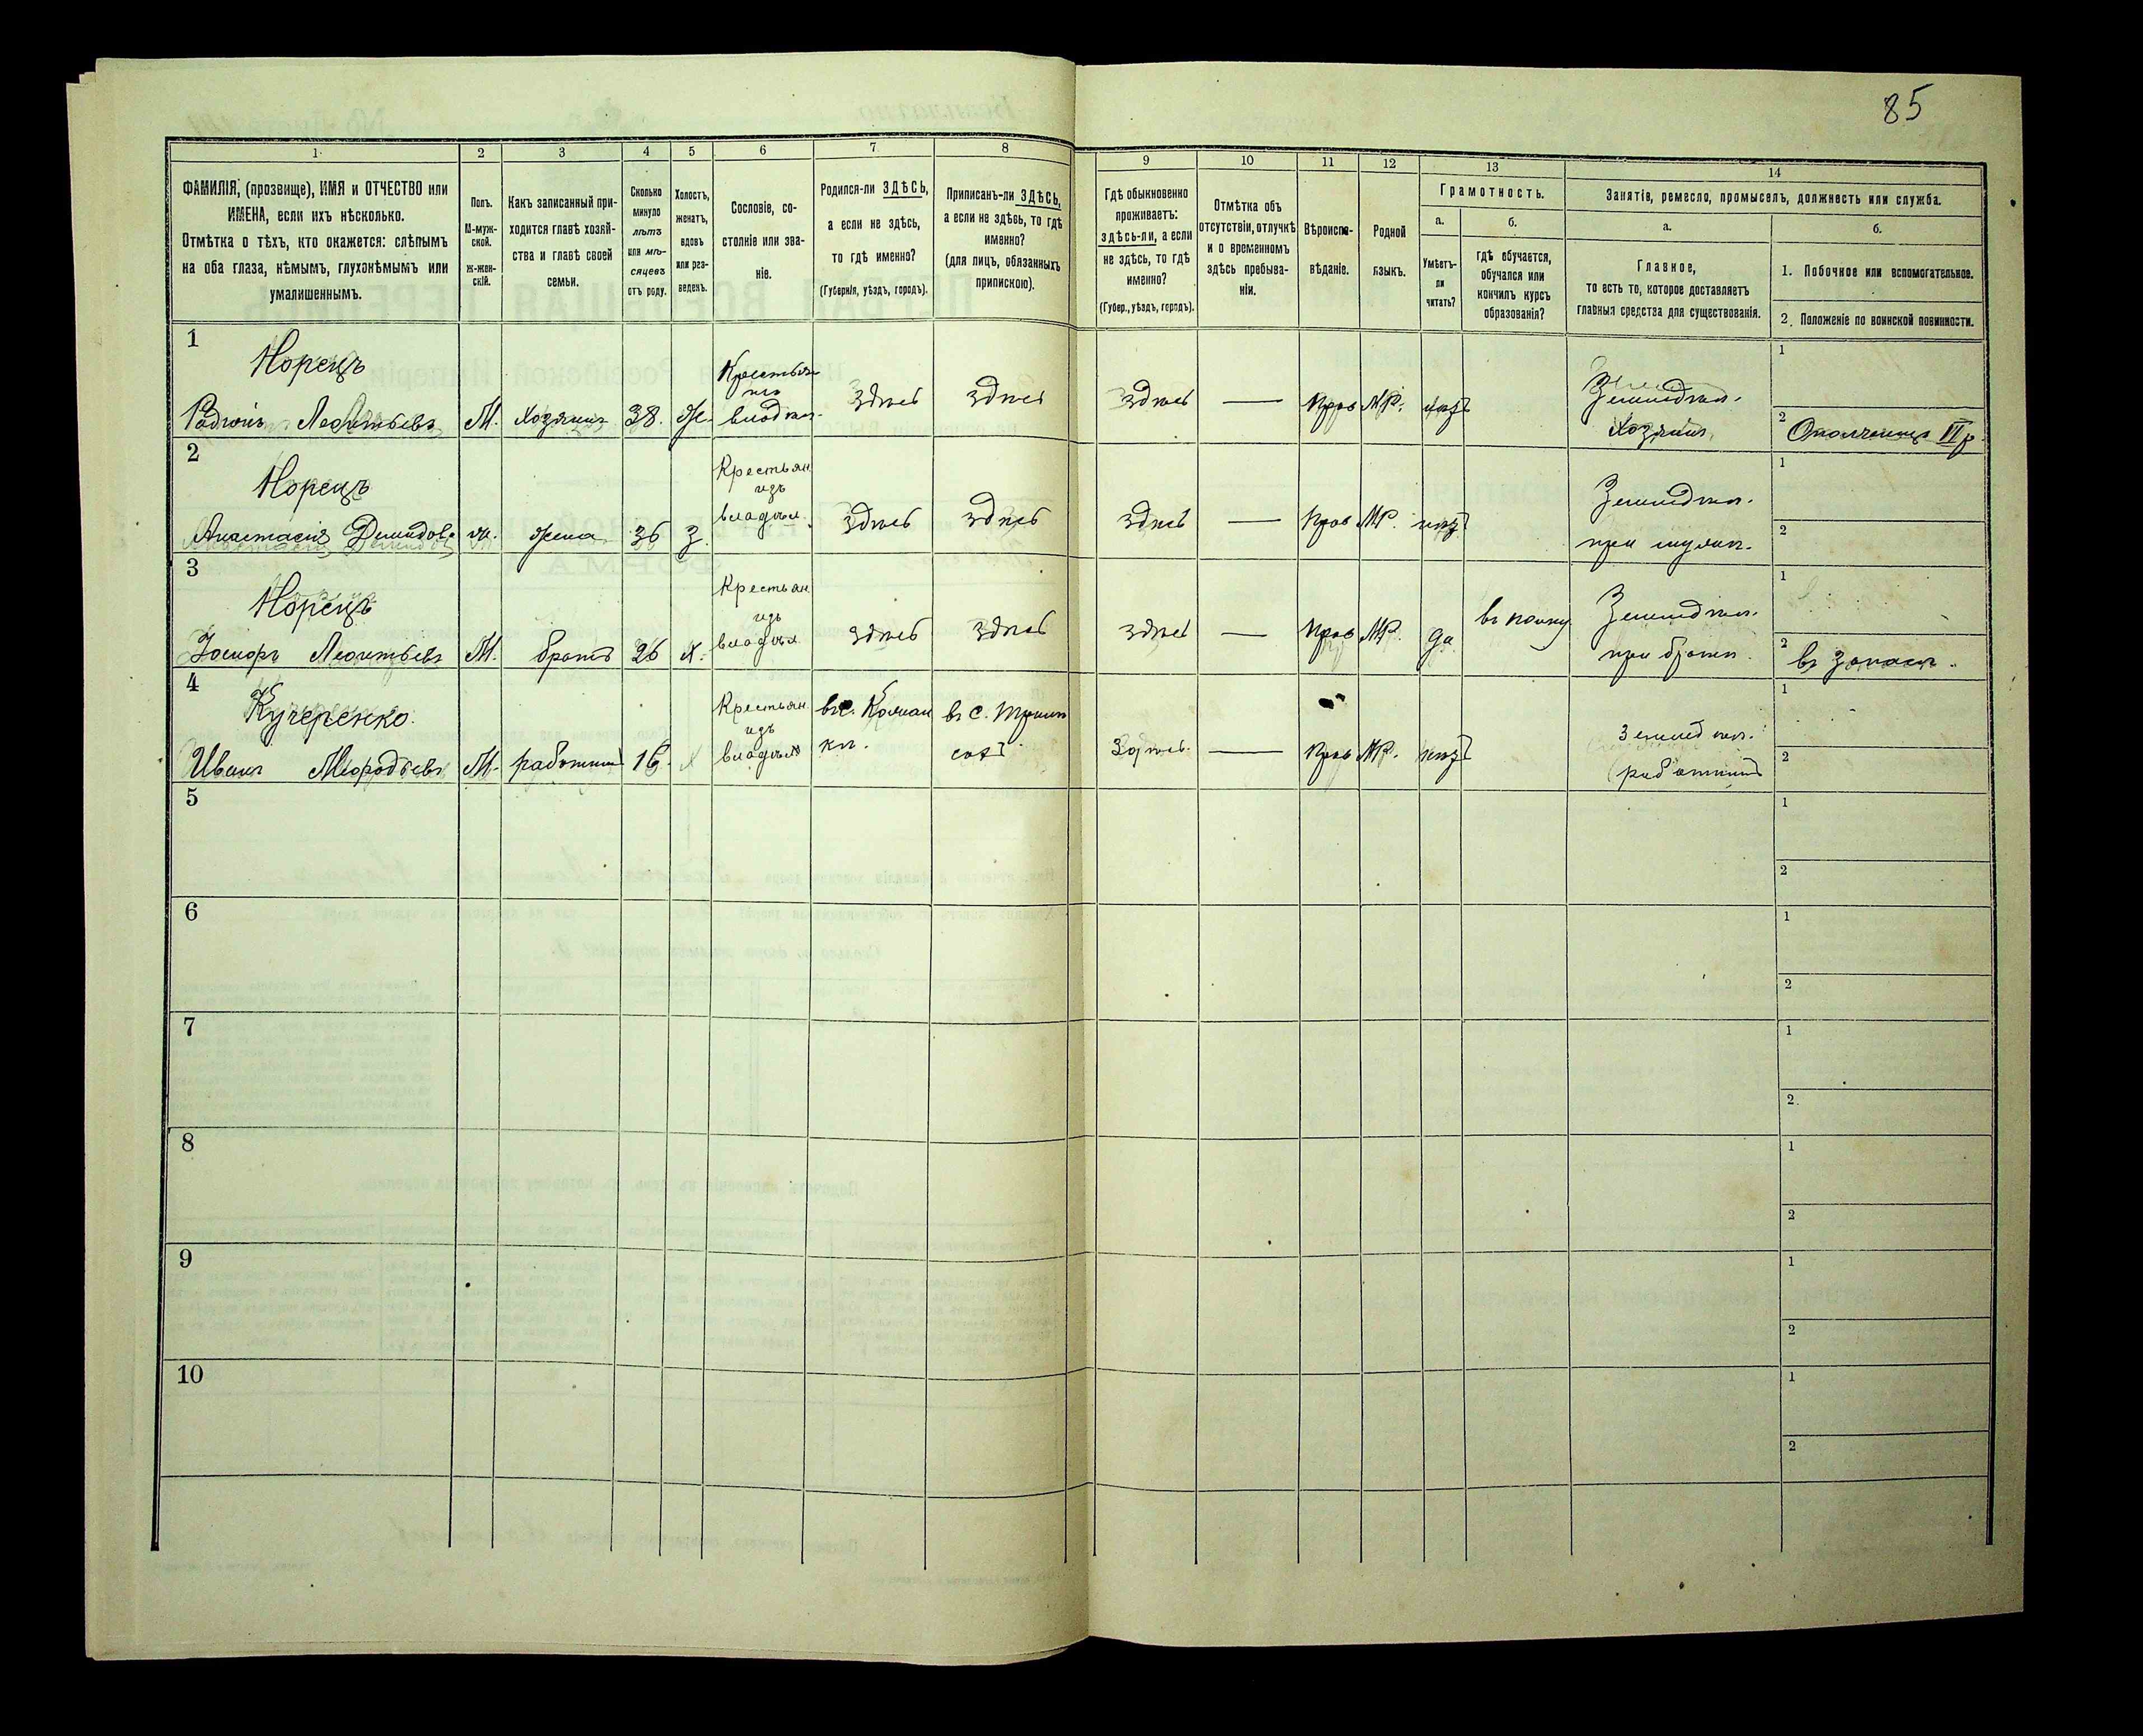 85
1
2
3
4
5
6
7
8
9
10
11
12
13
14
ФАМИЛІЯ, (прозвище), ИМЯ и ОТЧЕСТВО или
ИМЕНА, если ихъ нѣсколько.
Отмѣтка о тѣхъ, кто окажется: слѣпымъ
на оба глаза, нѣмымъ, глухонѣмымъ или
умалишеннымъ.
Полъ.
М-муж-
ской.
ж-жен-
скій.
Какъ записанный при-
ходится главѣ хозяй-
ства и главѣ своей
семьи.
Сколько
минуло
лѣтъ
или мѣ-
сяцевъ
отъ роду.
Холостъ,
женатъ,
вдовъ
или раз-
веденъ.
Сословіе, со-
стояніе или зва-
ніе.
Родился-ли ЗДѢСЬ,
а если не здѣсь,
то гдѣ именно?
(Губернія, уѣздъ, городъ).
Приписанъ-ли ЗДѢСЬ,
а если не здѣсь, то гдѣ
именно?
(для лицъ, обязанныхъ
припискою).
Гдѣ обыкновенно
проживаетъ:
здѣсь-ли, а если
не здѣсь, то гдѣ
именно?
(Губер., уѣздъ, городъ).
Отмѣтка объ
отсутствіи, отлучкѣ
и о временномъ
здѣсь пребыва-
ніи.
Вѣроиспо-
вѣданіе.
Родной
языкъ.
Грамотность.
а.
Умѣетъ-
ли
читать?
б.
гдѣ обучается,
обучался или
кончилъ курсъ
образованія?
Занятіе, ремесло, промыселъ, должность или служба.
а.
Главное,
то есть то, которое доставляетъ
главныя средства для существованія.
б.
1. Побочное или вспомогательное.
2. Положеніе по воинской повинности.
1
Норецъ
Родіонъ Леонтьевъ М. Хозяинъ 38. Ж. Крестьян
изъ
владѣл. здѣсь здѣсь здѣсь — Прав МР. нѣтъ Земледѣл.
Хозяинъ
1
2 Ополченецъ II р.
2
Норецъ
Анастасія Демидов. ж. жена 36 З. Крестьян
изъ
владѣл. здѣсь здѣсь здѣсь — Прав МР. нѣтъ Земледѣл.
при мужѣ.
1
2
3
Норецъ
Леонтьевъ М. братъ 26 х. Крестьян
изъ
владѣл. здѣсь здѣсь здѣсь — Прав МР. да въ полку Земледѣл.
при братѣ.
1
2 въ запасѣ.
4
Кучеренко.
Иванъ М. работникъ 16. х Крестьян
изъ
владѣл въ с. въ с.
здѣсь. — Прав МР. нѣтъ земледѣл.
работникъ
1
2
5
1
2
6
1
2
7
1
2.
8
1
2
9
1
2
10
1
2